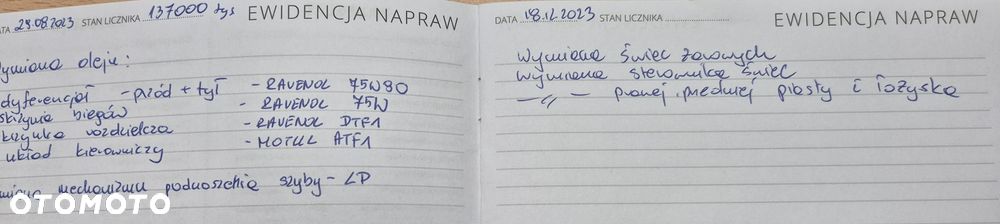 ATA 29.08.2023 STAN LICZNIKA 137000 tys EWIDENCJA NAPRAW
ymiana oleju:
dyferencjał - przód + tył - RAVENOL 75W90
skrzynia biegów - RAVENOL 75W
krzynka rozdzielcza - RAVENOL DTF1
układ kierowniczy - MOTUL ATF1
miana mechanizmu podnoszenia szyby - LP
DATA 18.12.2023 STAN LICZNIKA EWIDENCJA NAPRAW
Wymiana świec żarowych
wymiana sterownika świec
—〃 — prawej przedniej piasty i łożyska
OTOMOTO